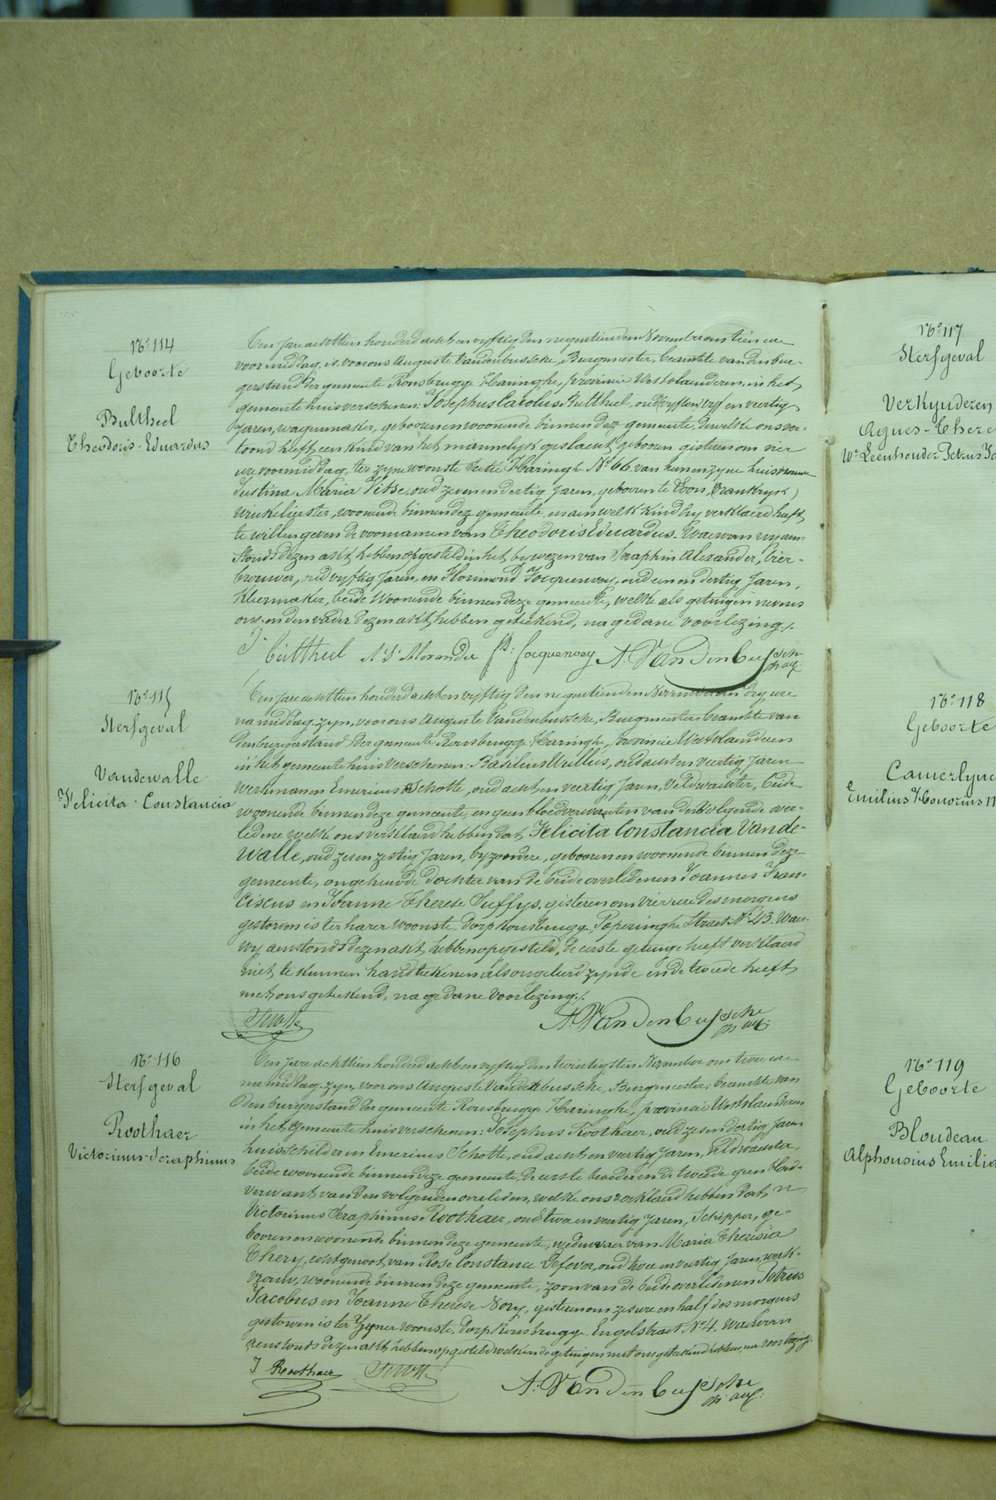 N° 114
Geboorte
Bultheel
Theodoris-Eduardus
Den jare achttien honderd acht en vyftig den negentienden November om tien ure
voormiddag, is voor ons Auguste Vandenbussche, Burgmeester, beambte van den bur-
gerstand der gemeente Rousbrugge Haringhe, provincie Westvlaenderen, in het
gemeente huis verschenen: Josephus Carolus Bultheel, oud vyf en veertig
Jaren, wagenmaker, geboren en woonende binnen deze gemeente, dewelke ons ver-
toond heeft, een kind van het mannelyk geslacht, geboren gisteren om vier
ure voormiddag, ter zyne woonste Sectie Haringhe N° 66 van hem en zyne huisvrouw
Justina Maria Pitse, oud zeven en dertig Jaren, geboren te (Frankryk)
Winkeligster, woonende binnen deze gemeente, en aen welk kind hy verklaerd heeft
te willen geven de voornamen van Theodoris Eduardus. Waervan wy aen-
stonds dezen akt hebben opgesteld in het bywezen van Seraphin Alexander, bier-
brouwer, oud vyftig Jaren, en Florimond Jocquenoey, oud een en dertig Jaren,
Kleermaker, beide Woonende binnen deze gemeente, welke als getuigen nevens
ons en den vader dezen akt hebben geteekend, na gedane voorlezing./.
J. Bultheel A. Vandenbussche
N° 115
Sterfgeval
Vandewalle
Felicita-Constancia
Den jare achttien honderd acht en vyftig den negentienden November om dry ure
namiddag, zyn, voor ons Auguste Vandenbussche, Burgmeester, beambte van
den burgerstand der gemeente Rousbrugge Haringhe, provincie Westvlaenderen
in het gemeente huis verschenen: Basilius Willius, oud acht en veertig Jaren
Werkman en Emerius Schotte, oud acht en veertig Jaren, Veldwachter, beide
woonende binnen deze gemeente, en geen bloedverwanten van den volgende over-
ledene welke ons verklaerd hebben dat, Felicita Constancia Vande-
Walle, oud zes en zestig Jaren, byzondere, geboren en woonende binnen deze
gemeente, ongehuwde dochter van de beide overledenen Joannes Fran-
ciscus en Joanne Therese Suffys, gisteren om vier ure des morgens
gestorven is ter harer woonste, Dorp Rousbrugge, Poperinghe Straet N° 43. Waer-
wy aenstonds dezen akt, hebben opgesteld, De eerste getuige heeft verklaerd
niet te kunnen handteekenen als ongeleerd zynde en de tweede heeft
met ons geteekend, na gedane voorlezing./.
Schotte A. Vandenbussche
N° 116
Sterfgeval
Roothaer
Victorinus-Seraphinus
Den jare achttien honderd acht en vyftig den twintigsten November om twee ure
namiddag, zyn, voor ons Auguste Vandenbussche, Burgmeester, beambte van
den burgerstand der gemeente Rousbrugge Haringhe, provincie Westvlaenderen
in het Gemeente huis verschenen: Josephus Roothaer, oud zes en dertig Jaren
huisschilder en Emerius Schotte, oud acht en veertig Jaren, Veldwachter
beide woonende binnen deze gemeente, de eerste broeder en de tweede geen bloed-
verwant van den volgenden overleden, welke ons verklaerd hebben dat,
Victorinus Seraphinus Roothaer, oud twee en veertig Jaren, Schipper, ge-
boren en woonende binnen deze gemeente, weduwaer van Maria Theresia
Thery, echtgenoot van Rose Constance Defever, oud twee en veertig Jaren, werk-
vrouw, woonende binnen deze gemeente, zoon van de beide overledenen Petrus
Jacobus en Joanne Therese Nory, gisteren om zes ure en half des morgens
gestorven is ter Zyner woonste, Dorp Rousbrugge, Engelstraet N° 4. Waervan
aenstonds dezen akt hebben opgesteld welken de getuigen met ons geteekend hebben, na voorlezing./.
J. Roothaer Schotte A. Vandenbussche
N° 117
Sterfgeval
Verkynderen
Agnes-There
We Leenhouder Petrus
N° 118
Geboorte
Camerlync
Emilius Honorius
N° 119
Geboorte
Bloudeau
Alphonsius Emilia